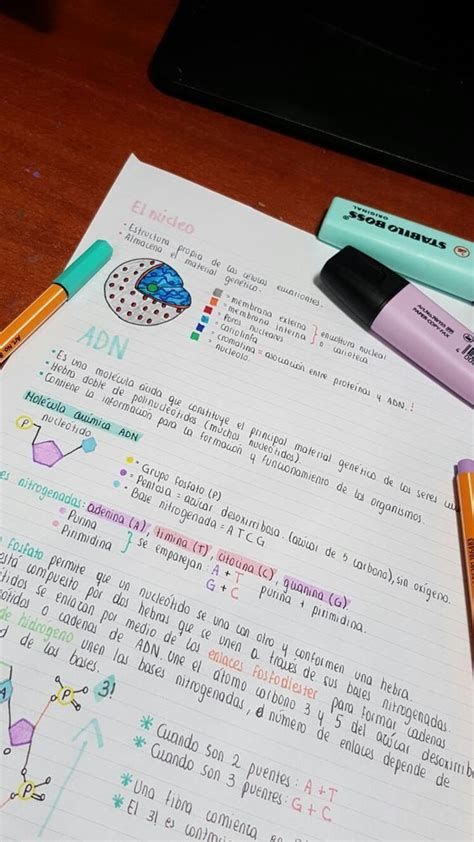 El núcleo
• Estructura propia de las células eucariontes.
• Almacena el material genético.
= membrana externa
= membrana interna
} envoltura nuclear
o carioteca
= Poros nucleares
= cariolinfa
= cromatina = asociación entre proteínas y ADN.
= nucleolo.
ADN
• Es una molécula ácida que constituye el principal material genético de los seres
• Hebra doble de polinucleótidos (muchos nucleótidos)
• Contiene la información para la formación y funcionamiento de los organismos.
Molécula química ADN
nucleótido
P
• = Grupo fosfato (P)
• = Pentosa = azúcar desoxirribosa. (azúcar de 5 carbono), sin oxígeno.
• = Base nitrogenada = A T C G
nitrogenadas: adenina (A), timina (T), citocina (C), guanina (G)
• Purina
• Pirimidina
} se emparejan: A + T
G + C
purina + pirimidina.
fosfato permite que un nucleótido se una con otro y conformen una hebra.
está compuesto por dos hebras que se unen a través de sus bases nitrogenadas.
se enlazan por medio de los enlaces fosfodiester para formar cadenas
o cadenas de ADN. Une el átomo carbono 3 y 5 del azúcar
de hidrógeno unen las bases nitrogenadas, el número de enlaces depende de
de las bases.
3!
P
A
P
* Cuando son 2 puentes: A + T
* Cuando son 3 puentes: G + C
* Una fibra comienza en
* El 3! es
STABILO BOSS
ORIGINAL